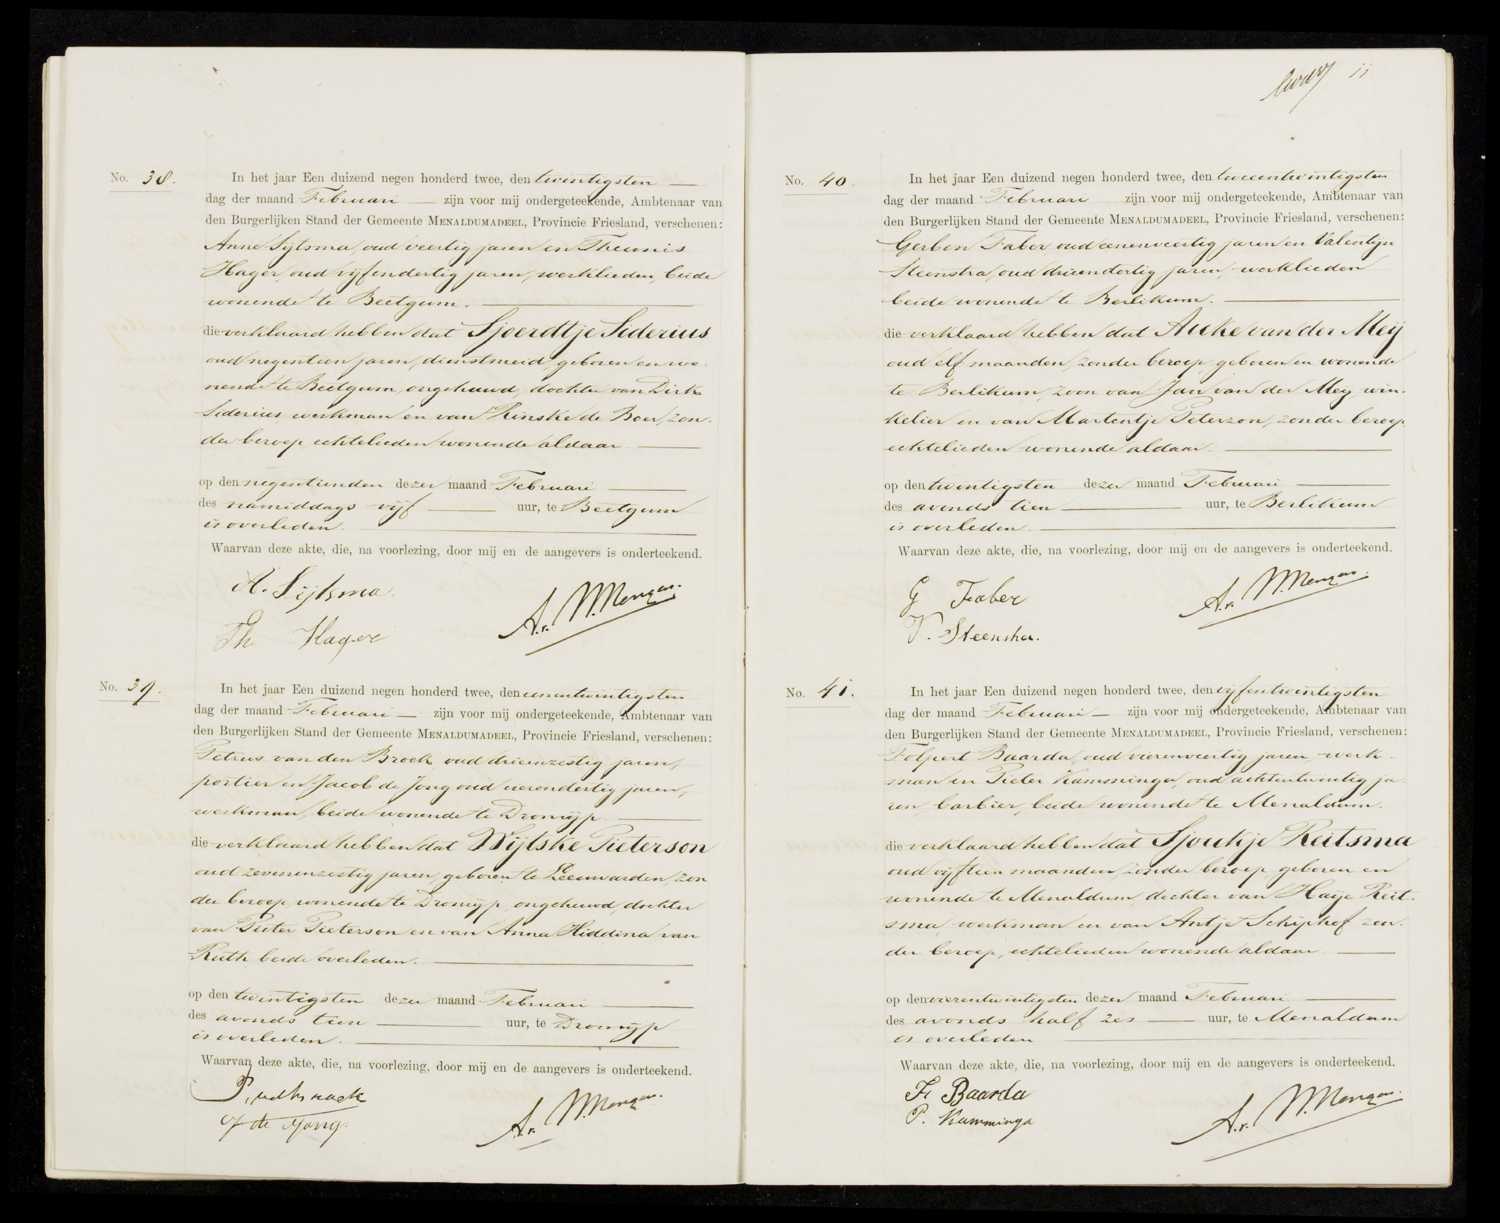 No. 38.
In het jaar Een duizend negen honderd twee, den twintigsten
dag der maand Februari zijn voor mij ondergeteekende, Ambtenaar van
den Burgerlijken Stand der Gemeente MENALDUMADEEL, Provincie Friesland, verschenen:
Anne Sijtsma, oud veertig jaren en Theunis
Hager, oud vijfendertig jaren, werklieden, beide
wonende te Beetgum.
die verklaard hebben dat Sjoerdtje Siderius
oud negentien jaren, dienstmeid, geboren en wo-
nende te Beetgum, ongehuwd, dochter van Dirk
Siderius werkman en van Rinske de Boer, zon-
der beroep echtelieden wonende aldaar
op den negentienden dezer maand Februari
des namiddags vijf uur, te Beetgum
is overleden.
Waarvan deze akte, die, na voorlezing, door mij en de aangevers is onderteekend.
A. Sijtsma
Th Hager
No. 39.
In het jaar Een duizend negen honderd twee, den eenentwintigsten
dag der maand Februari zijn voor mij ondergeteekende, Ambtenaar van
den Burgerlijken Stand der Gemeente MENALDUMADEEL, Provincie Friesland, verschenen:
Petrus van den Broek oud drieenzestig jaren,
portier en Jacob de Jong oud vierendertig jaren,
werkman, beide wonende te Dronrijp
die verklaard hebben dat Wijtske Pieterson
oud zevenenzestig jaren, geboren te Leeuwarden, zon
der beroep wonende te Dronrijp, ongehuwd, dochter
van Pieter Pieterson en van Anna Hiddina van
Ruth beide overleden.
op den twintigsten dezer maand Februari
des avonds tien uur, te Dronrijp
is overleden.
Waarvan deze akte, die, na voorlezing, door mij en de aangevers is onderteekend.
J de Jong
No. 40.
In het jaar Een duizend negen honderd twee, den tweeentwintigsten
dag der maand Februari zijn voor mij ondergeteekende, Ambtenaar van
den Burgerlijken Stand der Gemeente MENALDUMADEEL, Provincie Friesland, verschenen:
Gerben Faber oud eenenveertig jaren en Valentijn
Steenstra, oud drieendertig jaren, werklieden
beide wonende te Berlikum.
die verklaard hebben dat Auke van der Meij
oud elf maanden, zonder beroep, geboren en wonende
te Berlikum, zoon van Jan van der Meij win-
kelier en van Martentje Peterzon, zonder beroep
echtelieden wonende aldaar.
op den twintigsten dezer maand Februari
des avonds tien uur, te Berlikum
is overleden.
Waarvan deze akte, die, na voorlezing, door mij en de aangevers is onderteekend.
G Faber
V. Steenstra.
No. 41.
In het jaar Een duizend negen honderd twee, den vijfentwintigsten
dag der maand Februari zijn voor mij ondergeteekende, Ambtenaar van
den Burgerlijken Stand der Gemeente MENALDUMADEEL, Provincie Friesland, verschenen:
Folpert Baarda, oud vierenveertig jaren werk-
man en Pieter Kamminga, oud achtentwintig ja-
ren, barbier, beide wonende te Menaldum.
die verklaard hebben dat Sjoukje Reitsma
oud vijftien maanden, zonder beroep, geboren en
wonende te Menaldum dochter van Haije Reit-
sma werkman en van Antje Schiphof zon-
der beroep, echtelieden wonende aldaar
op den vierentwintigsten dezer maand Februari
des avonds half zes uur, te Menaldum
is overleden
Waarvan deze akte, die, na voorlezing, door mij en de aangevers is onderteekend.
F. Baarda
P. Kamminga